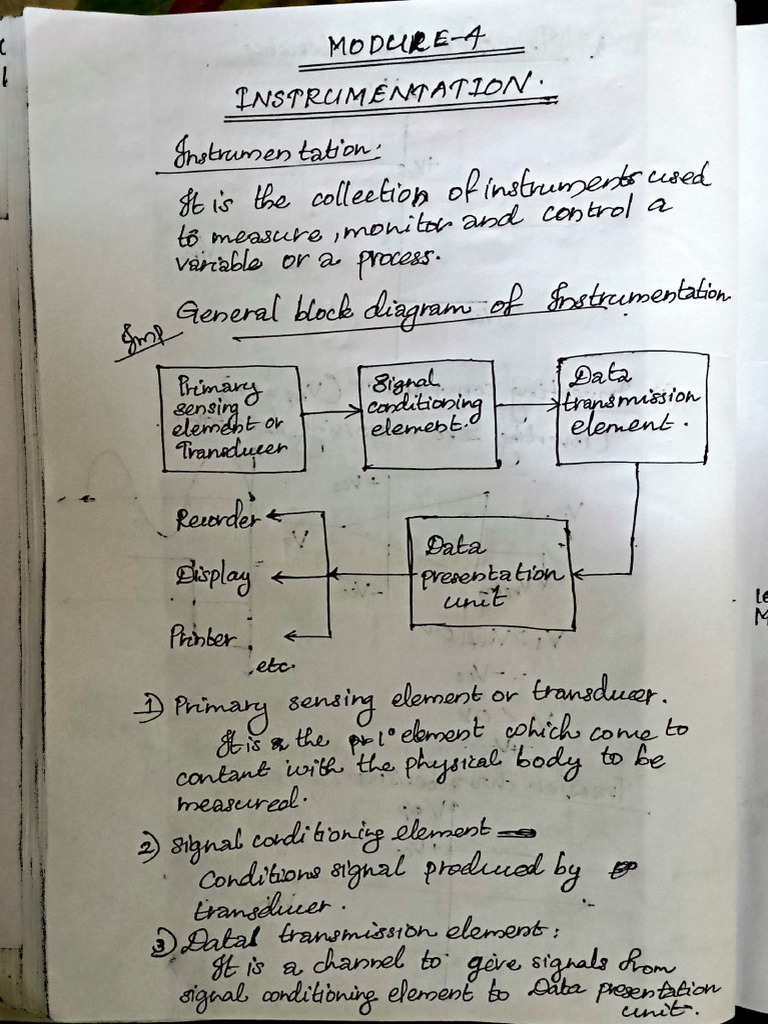 MODULE-4
INSTRUMENTATION.
Instrumentation:
It is the collection of instruments used
to measure, monitor and control a
variable or a process.
General block diagram of Instrumentation
Imp
Primary
sensing
element or
Transducer
Signal
conditioning
element.
Data
transmission
element.
Recorder
Display
Printer
etc.
Data
presentation
unit
1) Primary sensing element or transducer.
It is the 1° element which come to
contant with the physical body to be
measured.
2) Signal conditioning element
Conditions signal produced by
transducer.
3) Data transmission element:
It is a channel to give signals from
signal conditioning element to Data presentation
unit.